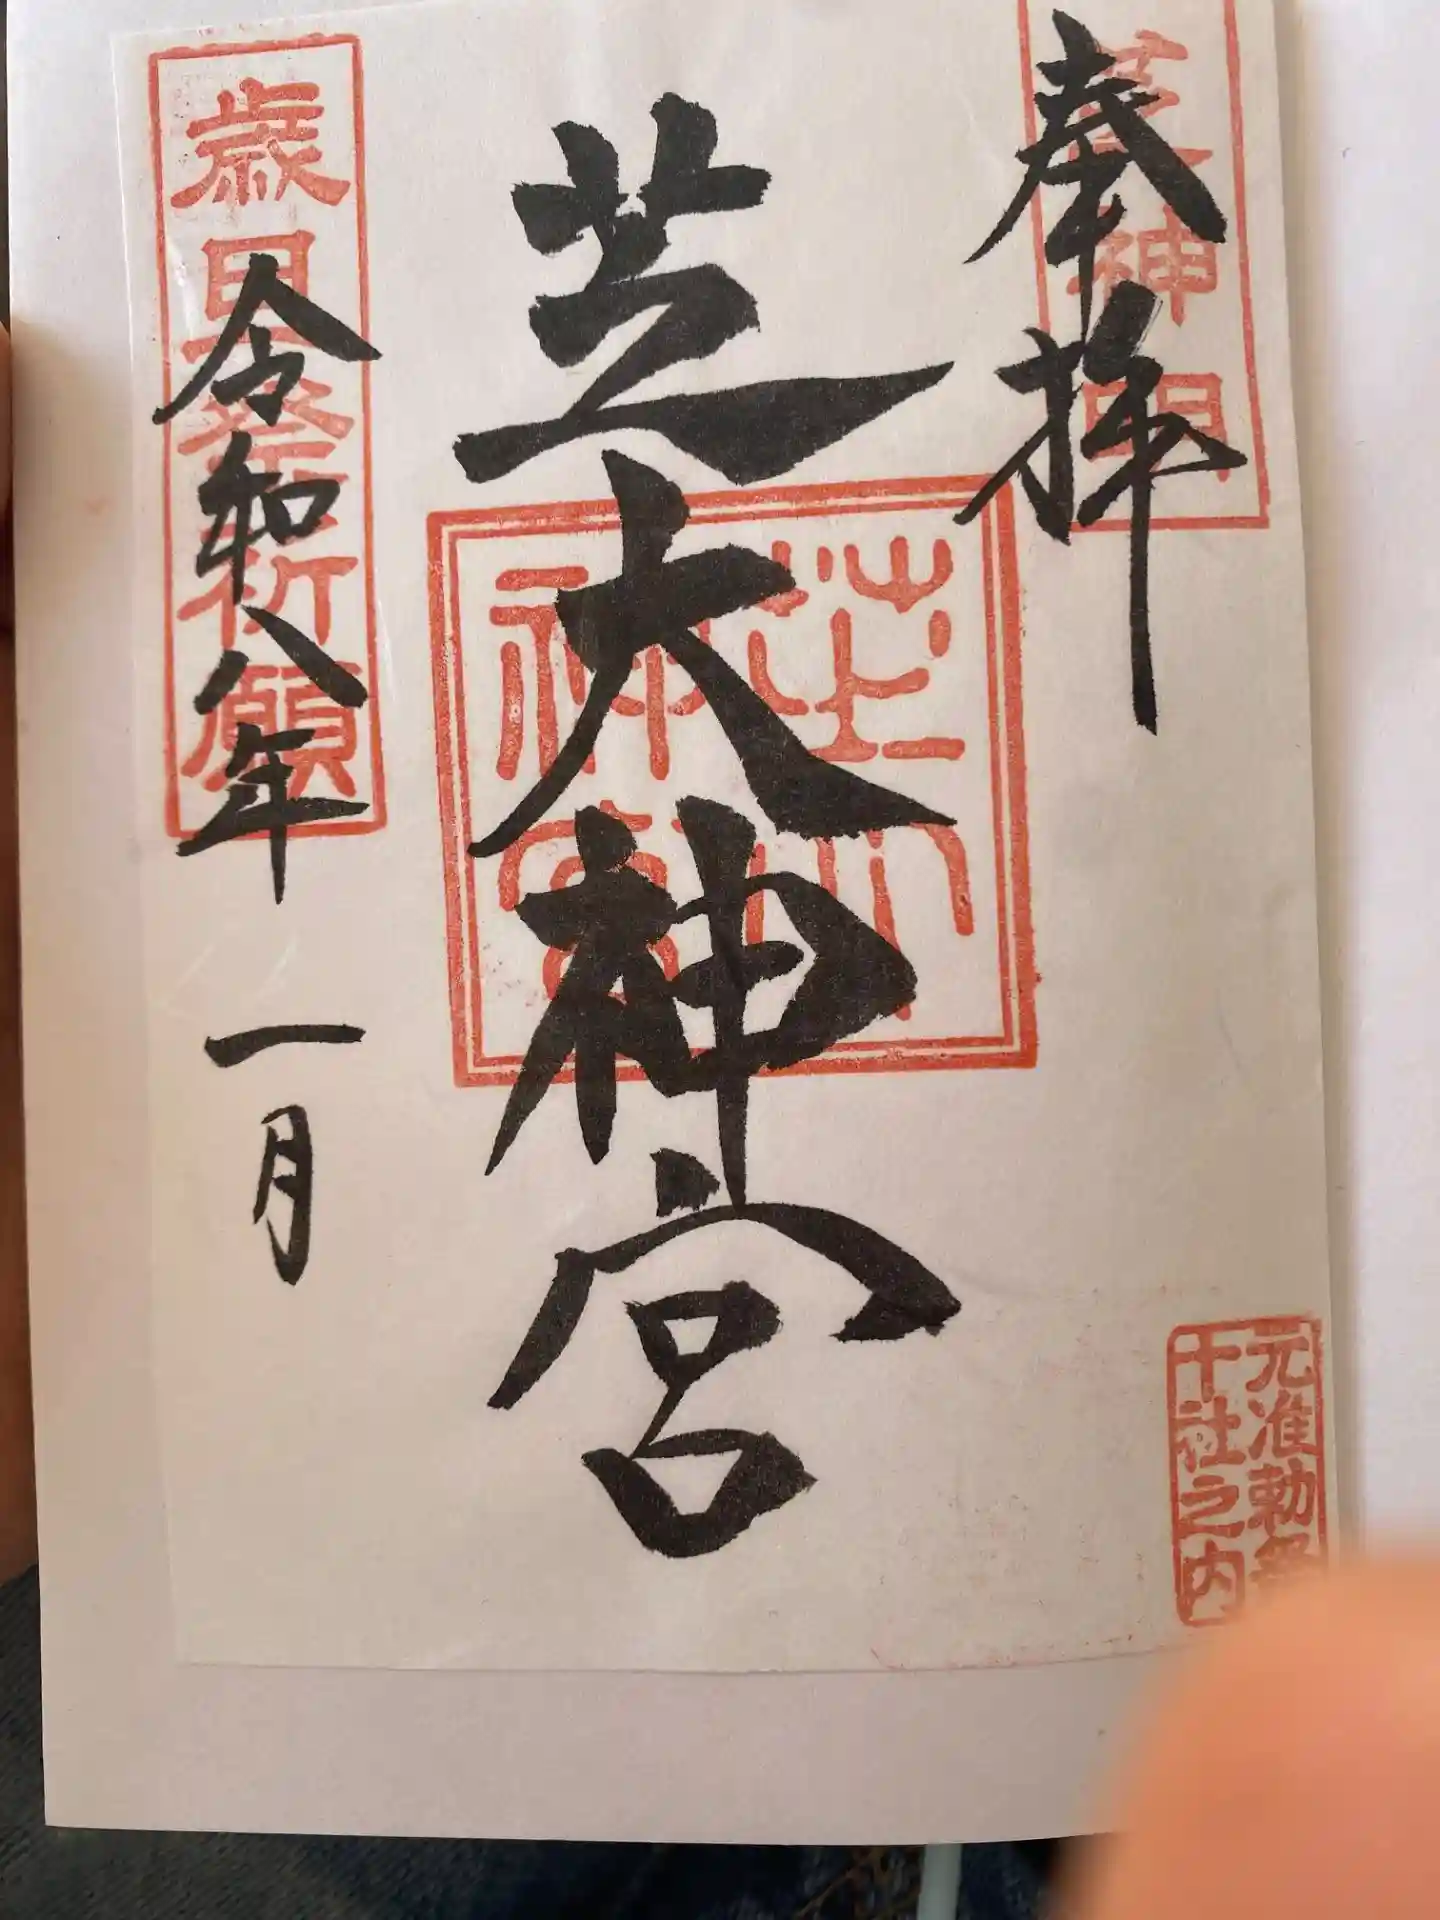 奉拝
芝大神宮
令和八年 一月
歳旦祭祈願
芝大
神宮
元准勅祭
十社之内